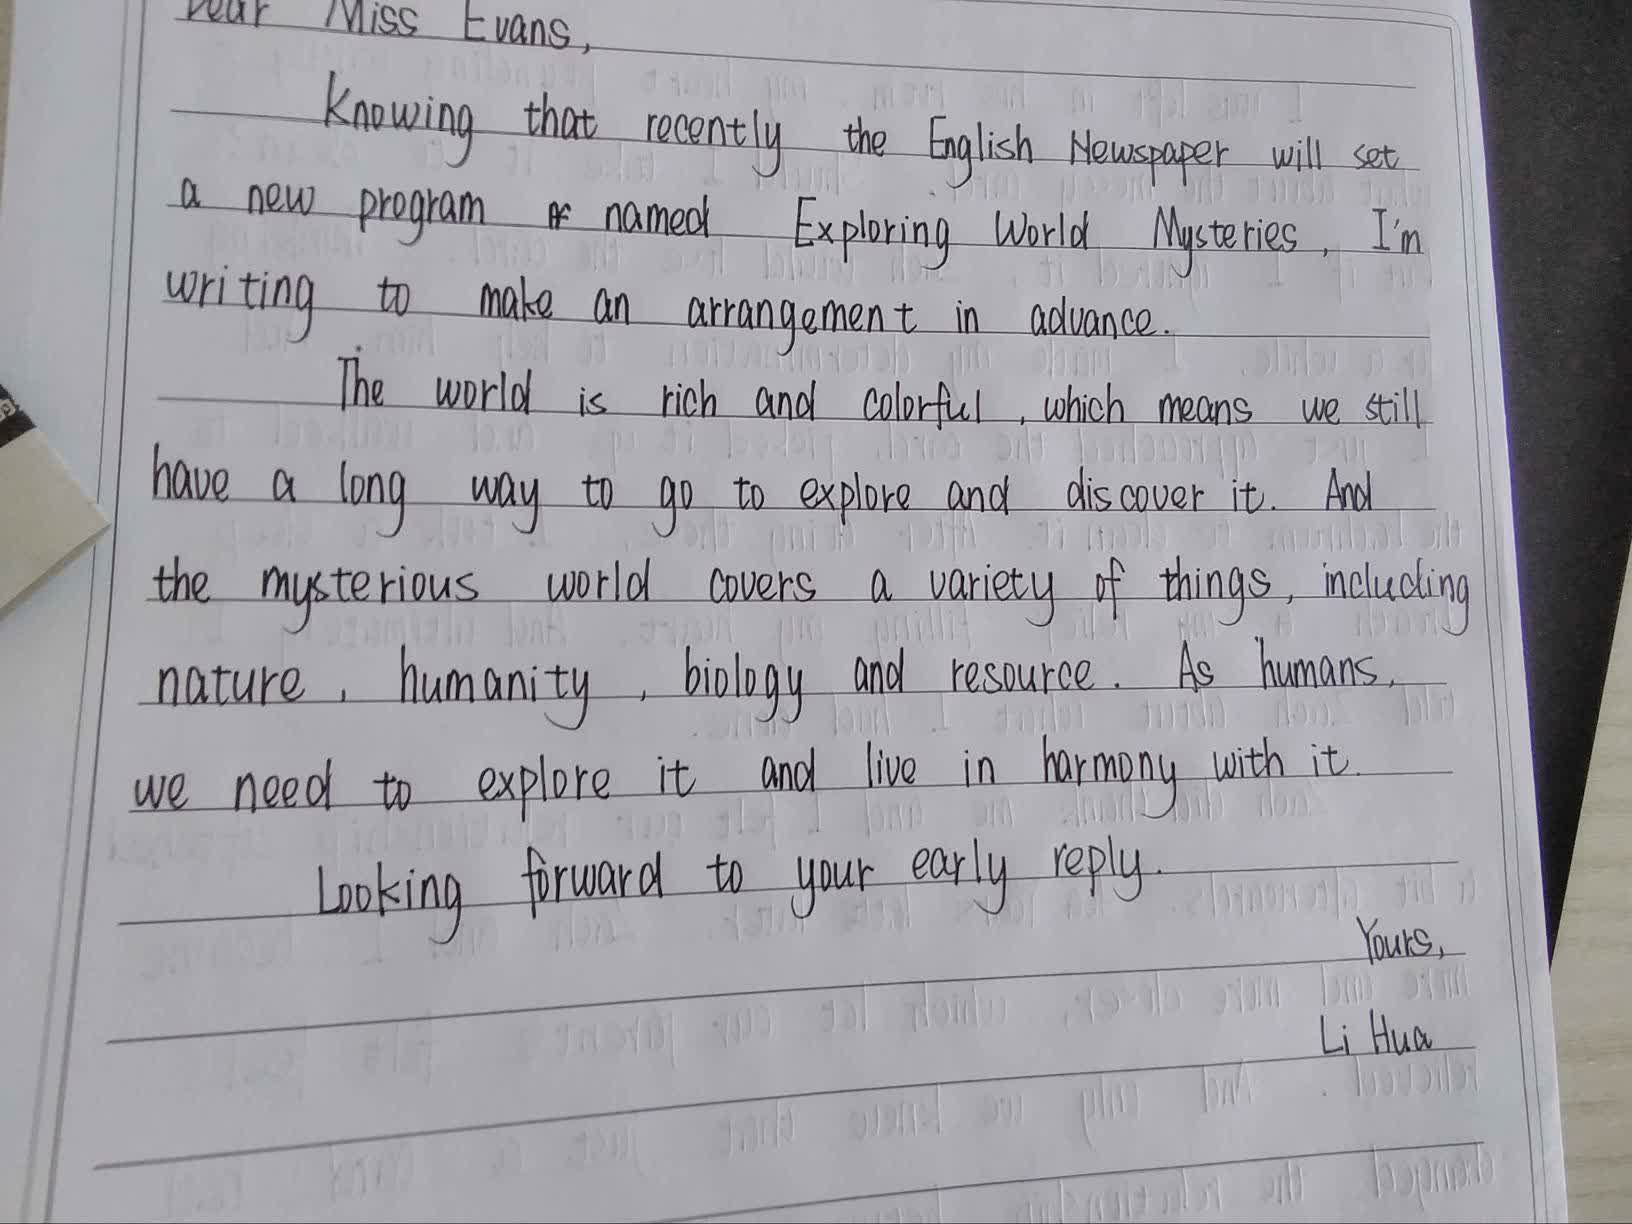 Dear Miss Evans,
Knowing that recently the English Newspaper will set
a new program named Exploring World Mysteries, I'm
writing to make an arrangement in advance.
The world is rich and colorful, which means we still
have a long way to go to explore and discover it. And
the mysterious world covers a variety of things, including
nature, humanity, biology and resource. As humans,
we need to explore it and live in harmony with it.
Looking forward to your early reply.
Yours,
Li Hua